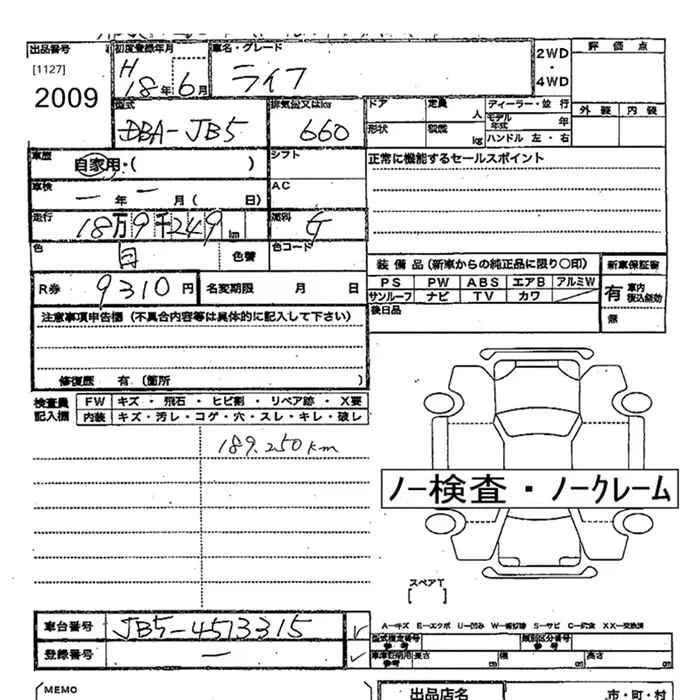 出品番号 初度登録年月 車名・グレード 2WD・4WD 評価点
[1127] H 18年6月 ライフ
2009 外装 内装
型式 排気量又はkw ドア 定員 人 ディーラー・並行
DBA-JB5 660 形状 積載 kg モデル年式 年
ハンドル 左・右
車歴 自家用・( ) シフト 正常に機能するセールスポイント
車検 ー年ー月( 日) AC
走行 18万9千249km 燃料 G
色 白 色替 色コード
装備品(新車からの純正品に限り○印) 新車保証書
R券 9310円 名変期限 月 日 PS PW ABS エアB アルミW 有 車内 後送有効
サンルーフ ナビ TV カワ
後日品 無
注意事項申告欄(不具合内容等は具体的に記入して下さい)
修復歴 有(箇所 )
検査員記入欄 FW キズ・飛石・ヒビ割・リペア跡・X要
内装 キズ・汚レ・コゲ・穴・スレ・キレ・破レ
189.250km
ノー検査・ノークレーム
スペアT
[ ]
車台番号 JB5-4573315 ✓ A-キズ E-エクボ U-凹ミ W-補修跡 S-サビ C-腐食 XX-交換済
型式指定番号 参考 類別区分番号 参考
登録番号 ー ✓ 車庫証明用 参考 長さ cm 幅 cm 高さ cm
MEMO 出品店名 市・町・村